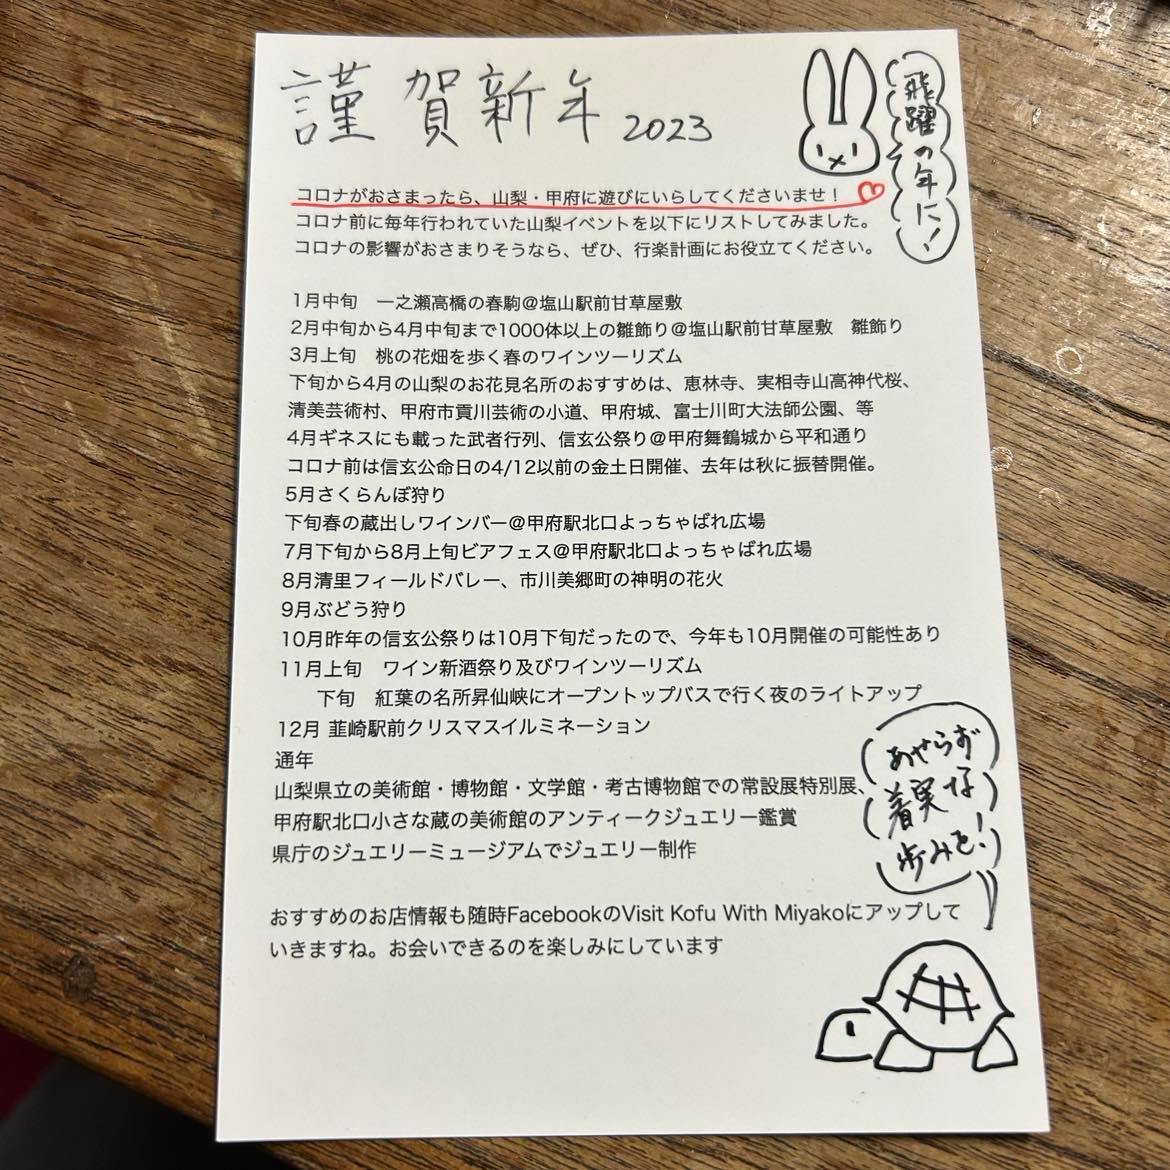 謹賀新年 2023
飛躍の年に!
コロナがおさまったら、山梨・甲府に遊びにいらしてくださいませ!
コロナ前に毎年行われていた山梨イベントを以下にリストしてみました。
コロナの影響がおさまりそうなら、ぜひ、行楽計画にお役立てください。
1月中旬　一之瀬高橋の春駒@塩山駅前甘草屋敷
2月中旬から4月中旬まで1000体以上の雛飾り@塩山駅前甘草屋敷　雛飾り
3月上旬　桃の花畑を歩く春のワインツーリズム
下旬から4月の山梨のお花見名所のおすすめは、恵林寺、実相寺山高神代桜、
清美芸術村、甲府市貢川芸術の小道、甲府城、富士川町大法師公園、等
4月ギネスにも載った武者行列、信玄公祭り@甲府舞鶴城から平和通り
コロナ前は信玄公命日の4/12以前の金土日開催、去年は秋に振替開催。
5月さくらんぼ狩り
下旬春の蔵出しワインバー@甲府駅北口よっちゃばれ広場
7月下旬から8月上旬ビアフェス@甲府駅北口よっちゃばれ広場
8月清里フィールドバレー、市川美郷町の神明の花火
9月ぶどう狩り
10月昨年の信玄公祭りは10月下旬だったので、今年も10月開催の可能性あり
11月上旬　ワイン新酒祭り及びワインツーリズム
下旬　紅葉の名所昇仙峡にオープントップバスで行く夜のライトアップ
12月 韮崎駅前クリスマスイルミネーション
通年
山梨県立の美術館・博物館・文学館・考古博物館での常設展特別展、
甲府駅北口小さな蔵の美術館のアンティークジュエリー鑑賞
県庁のジュエリーミュージアムでジュエリー制作
あせらず
着実な
歩みを!
おすすめのお店情報も随時FacebookのVisit Kofu With Miyakoにアップして
いきますね。お会いできるのを楽しみにしています